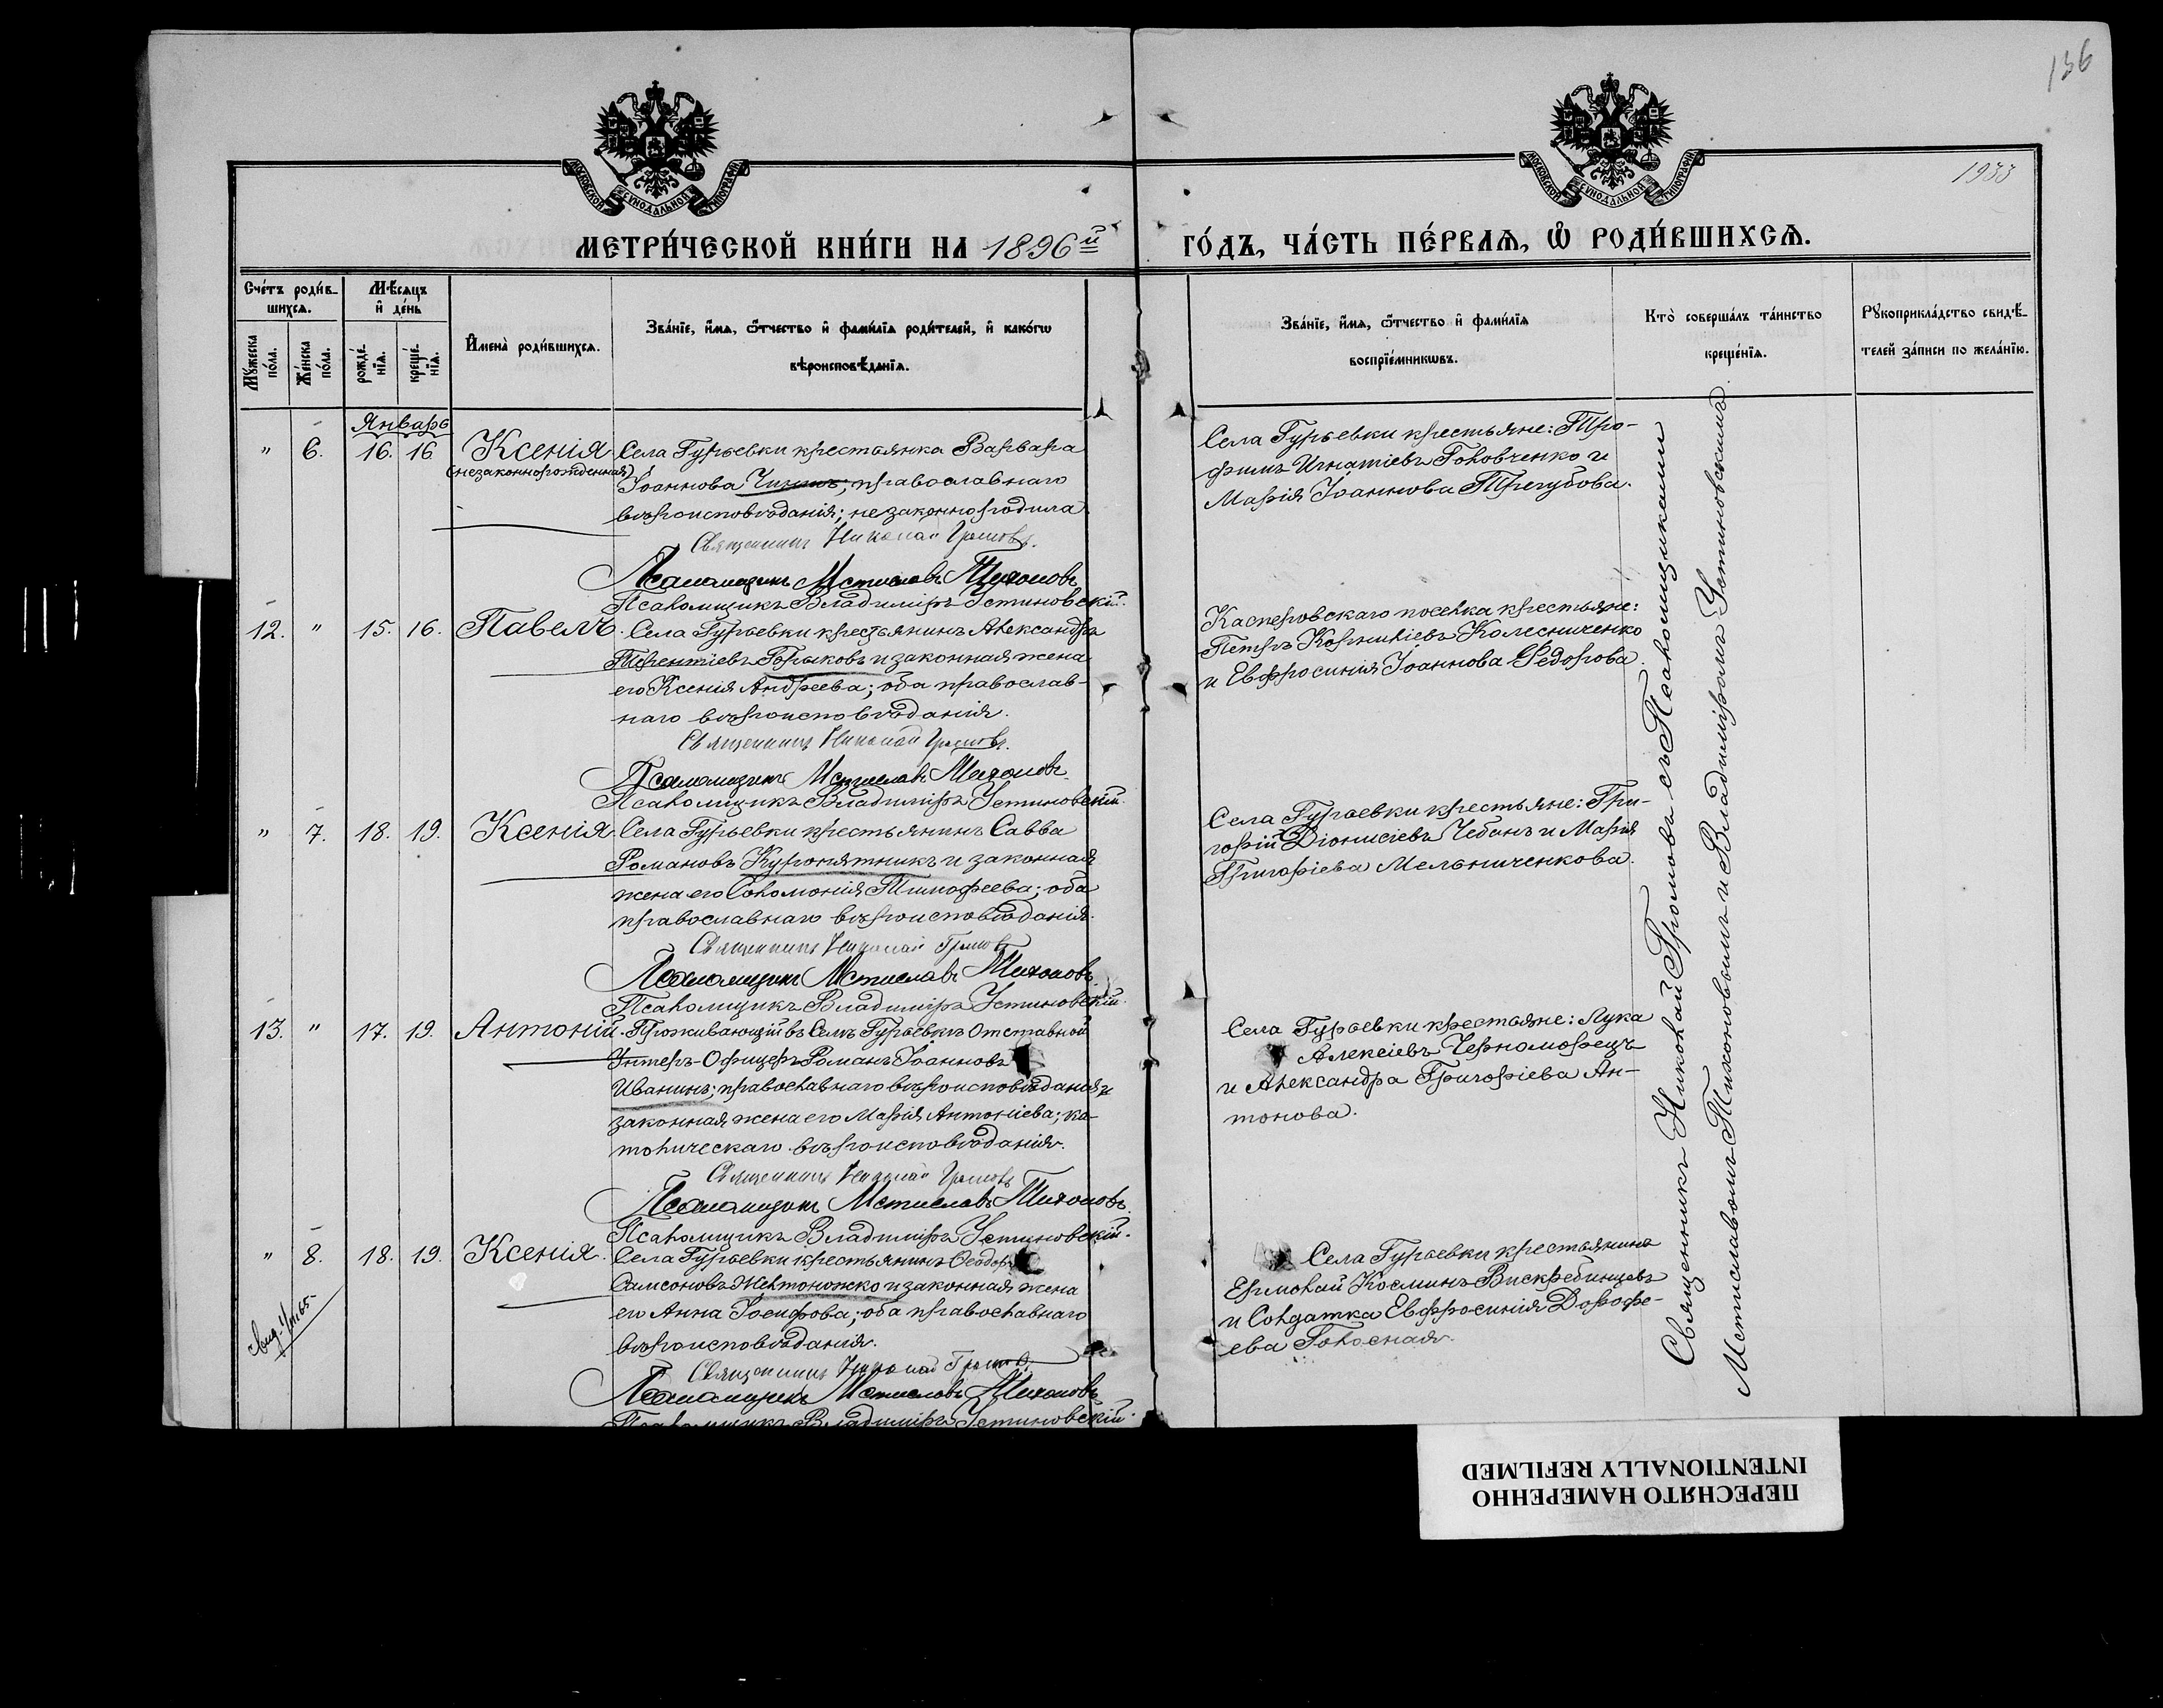 136
1933
МОСКОВСКОЙ СѴНОДАЛЬНОЙ ТИПОГРАФІИ
МОСКОВСКОЙ СѴНОДАЛЬНОЙ ТИПОГРАФІИ
МЕТРИ́ЧЕСКОЙ КНИ́ГИ НА 1896й ГО́ДЪ, ЧА́СТЬ ПЕ́РВАѦ, Ѡ҆ РОДИ́ВШИХСѦ.
Сче́тъ роди́в-
шихсѧ.
Мꙋ́жеска по́ла.
Же́нска по́ла.
Мѣ́сѧцъ и҆ де́нь
рожде́-нїѧ.
креще́-нїѧ.
И҆мена̀ роди́вшихсѧ.
Зва́нїе, и҆́мѧ, ѻ҆́тчество и҆ фами́лїѧ роди́телей, и҆ како́гѡ
вѣроисповѣ́данїѧ.
Зва́нїе, и҆́мѧ, ѻ҆́тчество и҆ фами́лїѧ
воспрїе́мникѡвъ.
Кто̀ соверша́лъ та́инство
креще́нїѧ.
Рꙋкоприкла́дство свидѣ́-
телей за́писи по жела́нїю.
Январь
" 6. 16. 16. Ксенія
(незаконнорожденная)
Села Гурьевки крестьянка Варвара
Іоаннова Чининъ; православнаго
вѣроисповѣданія; незаконно родила
Священникъ Николай Громовъ.
Псаломщикъ Мстиславъ Тихоновъ
Псаломщикъ Владиміръ Устиновскій.
Села Гурьевки крестьяне: Тро-
фимъ Игнатіевъ Головченко и
Марія Іоаннова Трегубова.
12. " 15. 16. Павелъ.
Села Гурьевки крестьянинъ Александръ
Терентіевъ Горыковъ и законная жена
его Ксенія Андреева; оба православ-
наго вѣроисповѣданія.
Священникъ Николай Громовъ.
Псаломщикъ Мстиславъ Тихоновъ
Псаломщикъ Владиміръ Устиновскій.
Касперовскаго поселка крестьяне:
Петръ Корниліевъ Колесниченко
и Евфросинія Іоаннова Федорова.
" 7. 18. 19. Ксенія.
Села Гурьевки крестьянинъ Савва
Романовъ Куропятникъ и законная
жена его Соломонія Тимофеева; оба
православнаго вѣроисповѣданія.
Священникъ Николай Громовъ
Псаломщикъ Мстиславъ Тихоновъ
Псаломщикъ Владиміръ Устиновскій.
Села Гурьевки крестьяне: Гри-
горій Діонисіевъ Чебанъ и Марія
Григоріева Мельниченкова.
13. " 17. 19. Антоній.
Проживающій въ Селѣ Гурьевкѣ Отставной
Унтеръ-Офицеръ Романъ Іоанновъ
Иванинъ; православнаго вѣроисповѣданія и
законная жена его Марія Антоніева; ка-
толическаго вѣроисповѣданія.
Священникъ Николай Громовъ
Псаломщикъ Мстиславъ Тихоновъ.
Псаломщикъ Владиміръ Устиновскій.
Села Гурьевки крестьяне: Лука
Алексіевъ Черноморецъ
и Александра Григоріева Ан-
тонова.
" 8. 18. 19. Ксенія.
Села Гурьевки крестьянинъ Ѳеодоръ
Самсоновъ Желтоножко и законная жена
его Анна Іосифова; оба православнаго
вѣроисповѣданія.
Священникъ Николай Громовъ.
Псаломщикъ Мстиславъ Тихоновъ
Псаломщикъ Владиміръ Устиновскій.
Села Гурьевки крестьянинъ
Ермолай Косминъ Вискребинцевъ
и Солдатка Евфросинія Дорофе-
ева Голосная.
Священникъ Николай Громовъ съ Псаломщиками
Мстиславомъ Тихоновымъ и Владиміромъ Устиновскимъ
ПЕРЕСНЯТО НАМЕРЕННО
INTENTIONALLY REFILMED